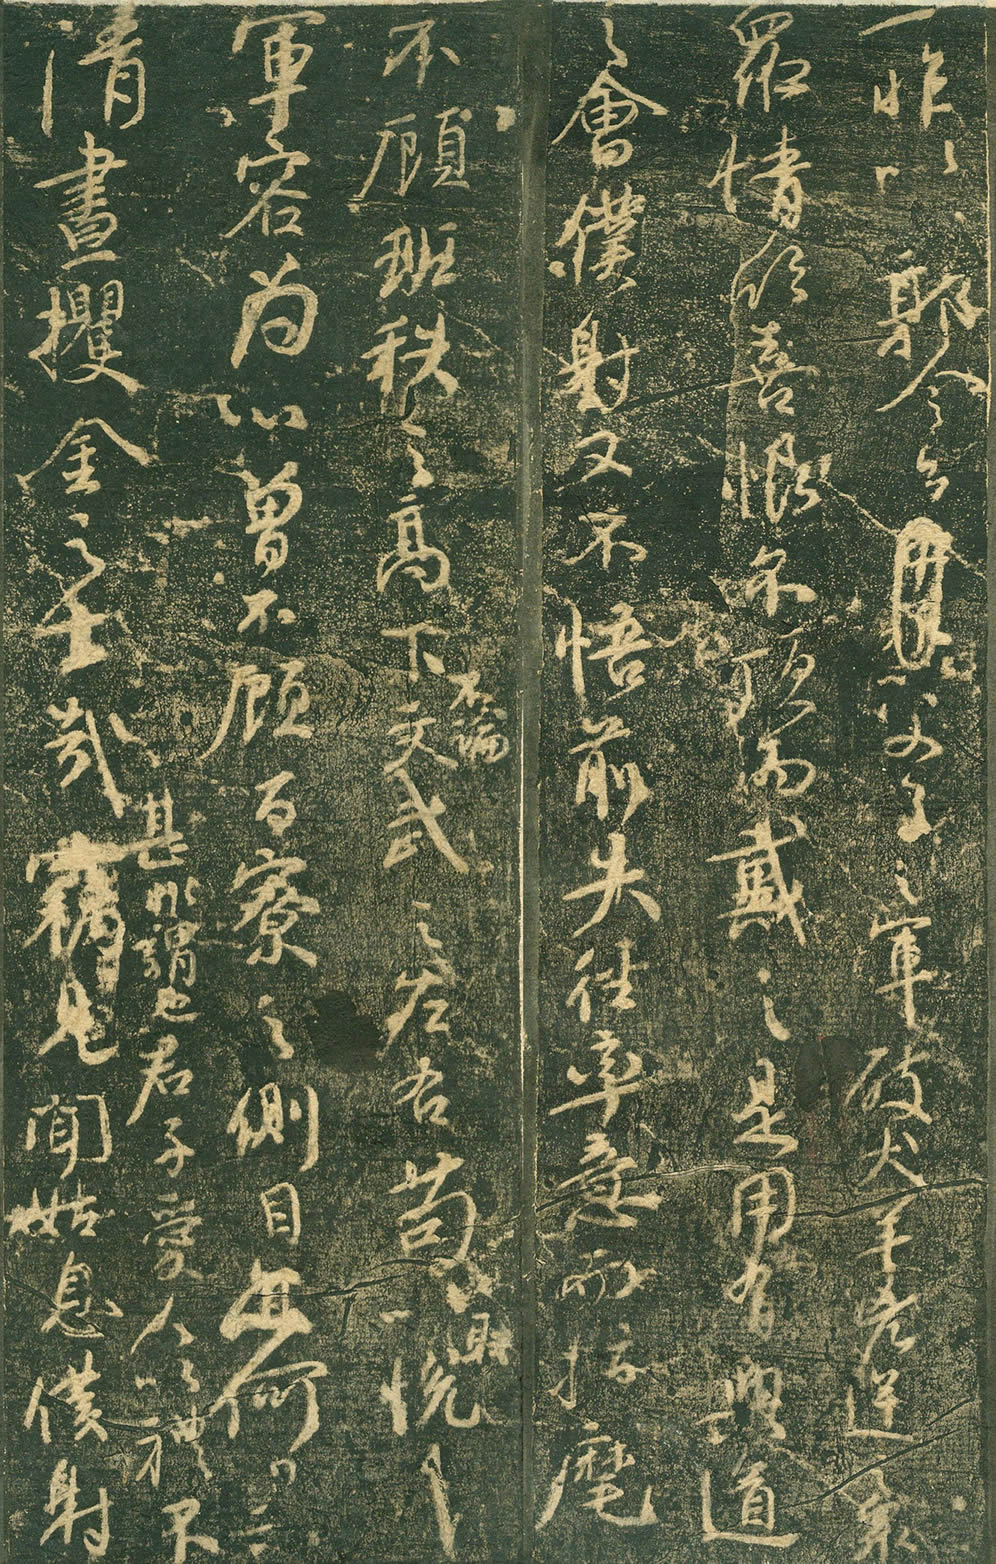 一昨以郭令公以父子之軍破犬羊凶逆衆
衆情欣喜恨不頂而戴之是用有興道
之會僕射又不悟前失徑率意而指麾
不顧班秩之高下不論文武之左右苟以取悅
軍容为心曾不顧百寮之側目亦何異
清晝攫金之士哉甚非謂也君子愛人以禮不
竊見聞姑息僕射